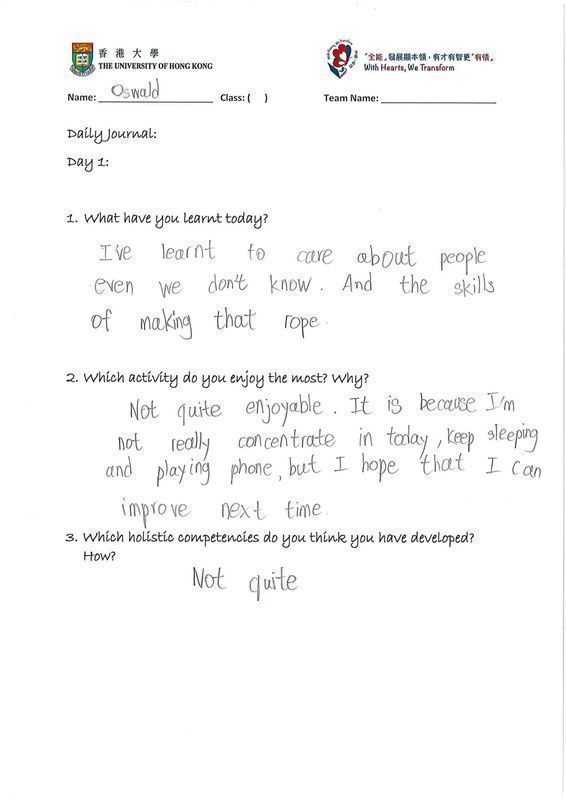 香港大學
THE UNIVERSITY OF HONG KONG
「全能」發展顯本領，有才有智更"有情」
With Hearts, We Transform
Name: Oswald Class: ( ) Team Name:
Daily Journal:
Day 1:
1. What have you learnt today?
I've learnt to care about people
even we don't know. And the skills
of making that rope.
2. Which activity do you enjoy the most? Why?
Not quite enjoyable. It is because I'm
not really concentrate in today, keep sleeping
and playing phone, but I hope that I can
improve next time.
3. Which holistic competencies do you think you have developed?
How?
Not quite